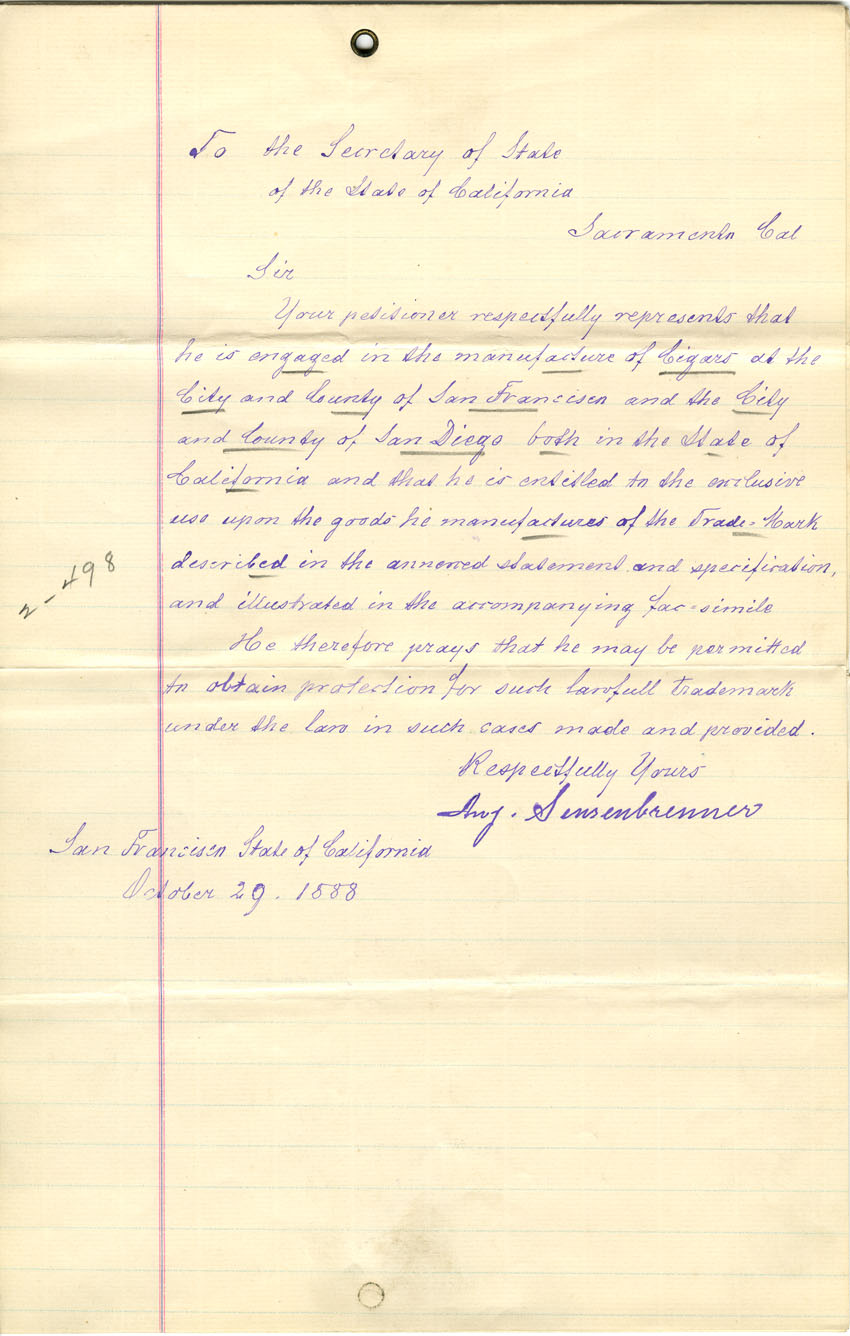 To the Secretary of State
of the State of California
Sacramento Cal
Sir
Your petitioner respectfully represents that
he is engaged in the manufacture of Cigars at the
City and County of San Francisco and the City
and County of San Diego both in the State of
California and that he is entitled to the exclusive
use upon the goods he manufactures of the Trade=Mark
described in the annexed statement and specification,
and illustrated in the accompanying fac=simile
He therefore prays that he may be permitted
to obtain protection for such lawfull trademark
under the law in such cases made and provided.
Respectfully Yours
Aug. Sensenbrenner
San Francisco State of California
October 29. 1888
2-498